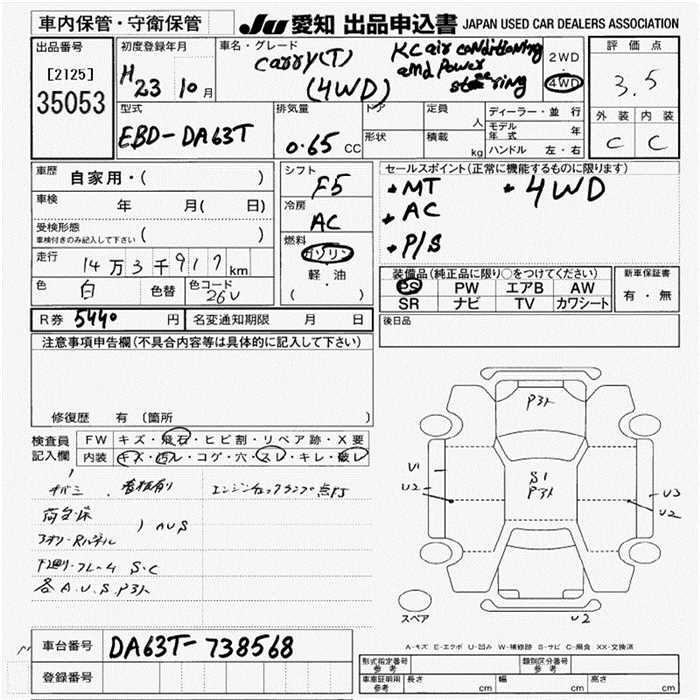 車内保管・守衛保管
JU 愛知 出品申込書 JAPAN USED CAR DEALERS ASSOCIATION
出品番号
[2125]
35053
初度登録年月
H 23 10月
車名・グレード
carry(T)
(4WD)
KC air conditioning
and power
steering
2WD
4WD
評価点
3.5
外装 内装
C C
型式
EBD-DA63T
排気量
0.65 CC
ドア
定員
人
形状
積載
kg
ディーラー・並行
モデル年式 年
ハンドル 左・右
車歴
自家用・( )
車検
年 月( 日)
受検形態
車検付きのみ記入して下さい ( )
走行
14万3千917km
色
白
色替
色コード
26U
シフト
F5
冷房
AC
燃料
ガソリン
軽・油
( ・ )
セールスポイント(正常に機能するものに限ります)
・MT ・4WD
・AC
・P/S
装備品(純正品に限り○をつけてください)
PS PW エアB AW
SR ナビ TV カワシート
新車保証書
有・無
R券 5440 円
名変通知期限 月 日
後日品
注意事項申告欄(不具合内容等は具体的に記入して下さい)
修復歴 有 〔箇所
検査員
記入欄
FW キズ・飛石・ヒビ割・リペア跡・X要
内装 キズ・汚レ・コゲ・穴・スレ・キレ・破レ
看板有り エンジンチェックランプ点灯
荷台・床
) AUS
下廻り・フレーム S.C
各A.U.S.Pスト
Pスト
S1
Pスト
U1
U2
U3
U2
スペア
U2
A-キズ E-エクボ U-凹み W-補修跡 S-サビ C-腐食 XX-交換済
車台番号 DA63T-738568
登録番号
型式指定番号
参考
類別区分番号
参考
車庫証明用
参考
長さ cm
幅 cm
高さ cm